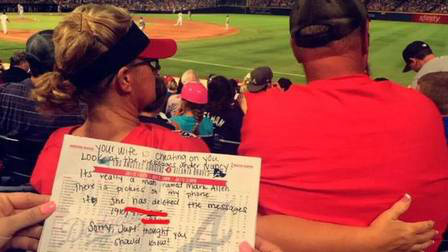 Your wife is cheating on you
Look at the messages under Nancy
It's really a man named Mark Allen
There is pictures on my phone
if she has deleted the messages
Sorry, Just thought you
should know!